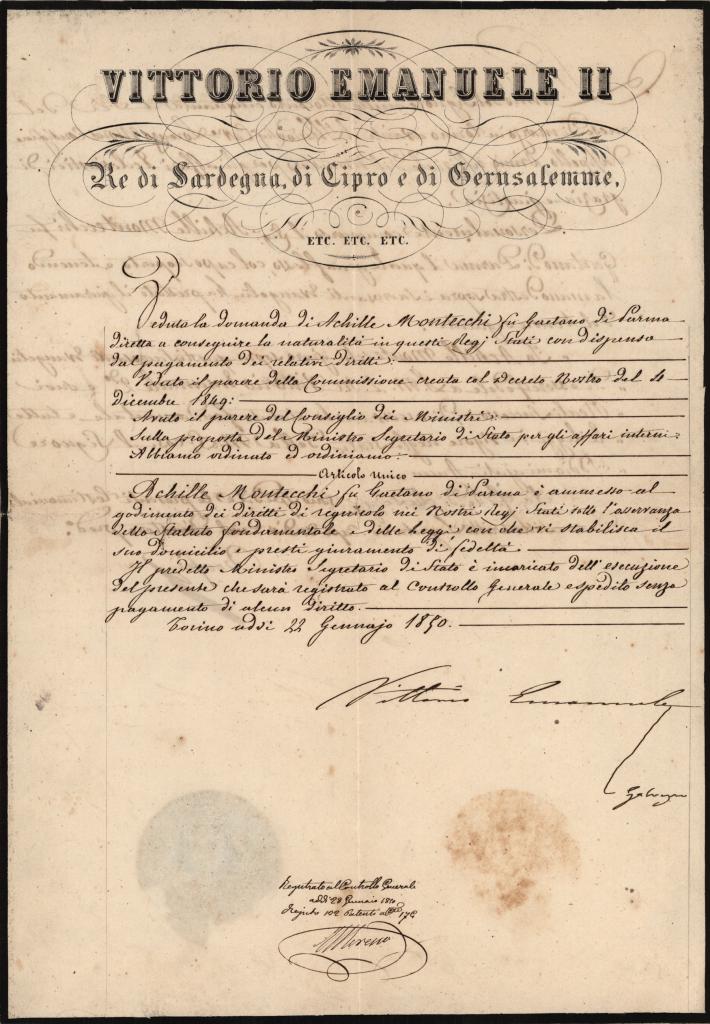 VITTORIO EMANUELE II
Re di Sardegna, di Cipro e di Gerusalemme,
ETC. ETC. ETC.
Veduta la domanda di Achille Montecchi fu Gaetano di Parma
diretta a conseguire la naturalità in questi Regj Stati con dispensa
dal pagamento dei relativi diritti:
Veduto il parere della Commissione creata col Decreto Nostro del 4
Dicembre 1849:
Avuto il parere del Consiglio dei Ministri:
Sulla proposta del Ministro Segretario di Stato per gli affari interni:
Abbiamo ordinato ed ordiniamo:
Articolo Unico
Achille Montecchi fu Gaetano di Parma è ammesso al
godimento dei diritti di regnicolo nei Nostri Regj Stati sotto l'osservanza
dello Statuto fondamentale e delle Leggi, con che vi stabilisca il
suo domicilio e presti giuramento di fedeltà.
Il predetto Ministro Segretario di Stato è incaricato dell'esecuzione
del presente che sarà registrato al Controllo Generale e spedito senza
pagamento di alcun diritto.
Torino addì 22 Gennajo 1850.
Vittorio Emanuele
Galvagno
Registrato al Controllo Generale
addì 28 Gennaio 1850
Registro 102 Patenti
Moreno